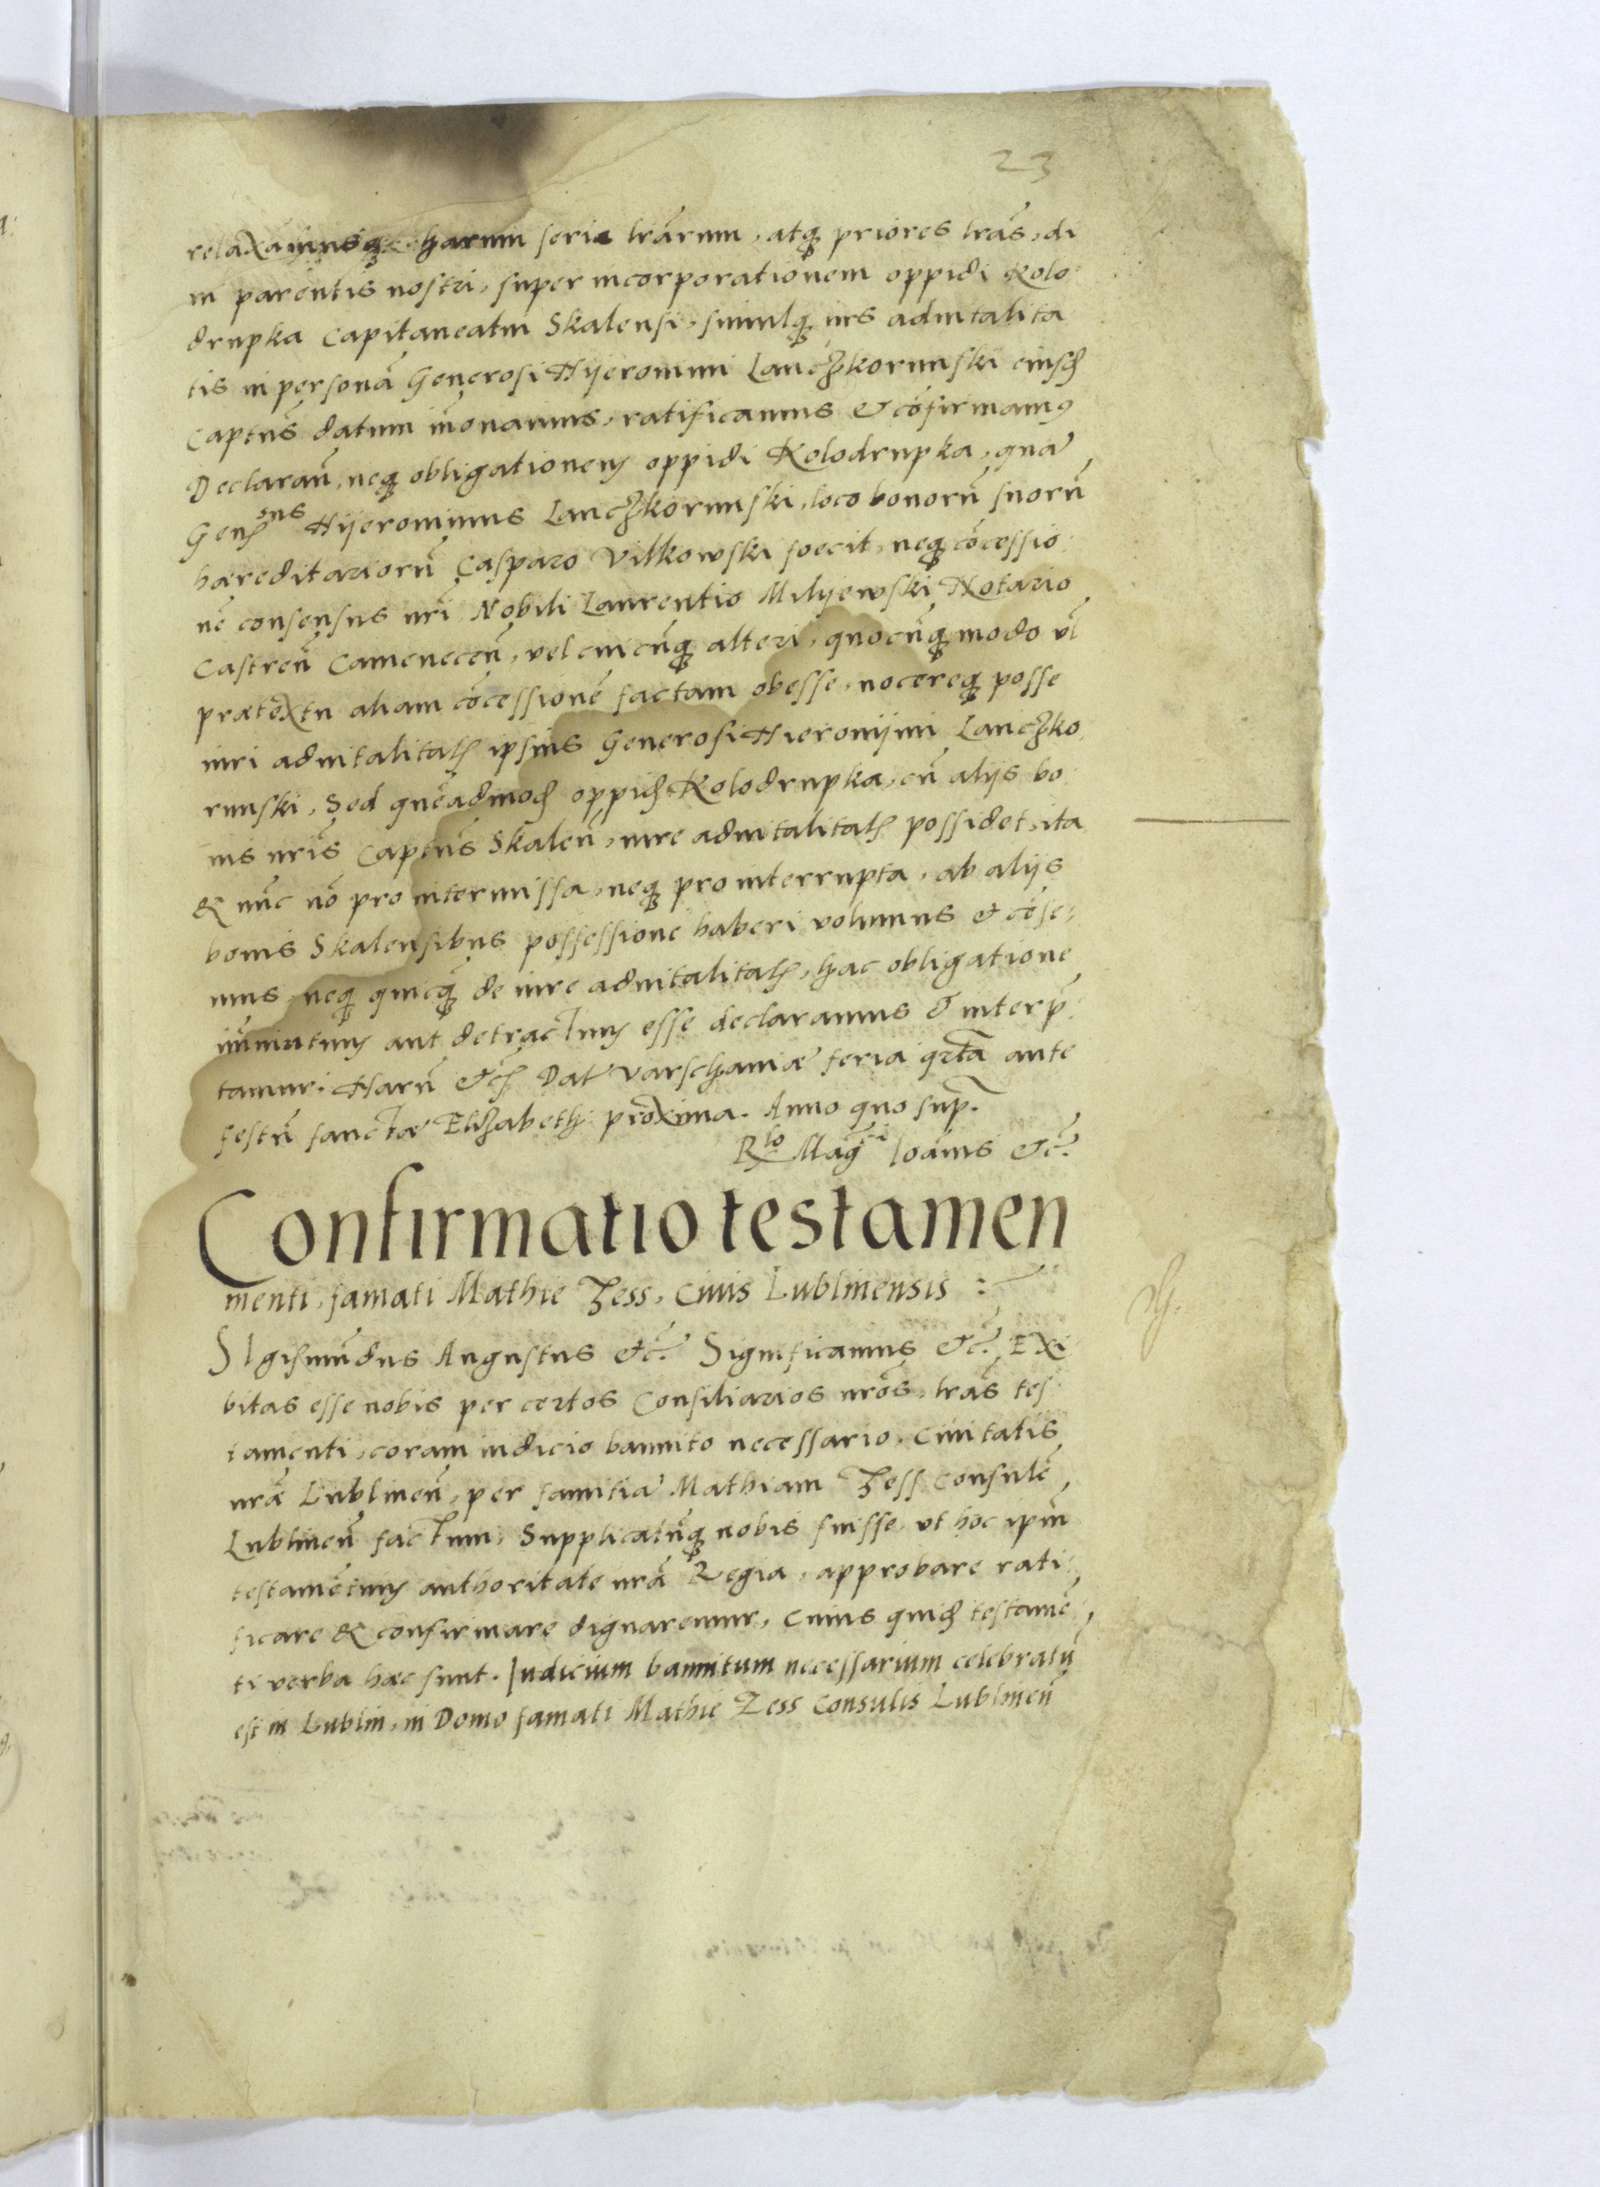 23
relaxamusq harum serie lrarum, atq priores lras, di
vi parentis nostri, super incorporationem oppidi Kolo
drupka Capitaneatui Skalensi, simulq ius advitalita
tis in personā Generosi Hijeronimi Lanczkorunski eiusd
Captus datum īnovamus, ratificamus & cōfirmamus
Declaran, neq obligationem oppidi Kolodrupka, quā
Generosus Hijeronimus Lanczkorunski, loco bonorū suorū
hæreditariorū Casparo Vilkowski foecit, neq cōcessio
nē consensus nri Nobili Laurentio Milijewski Notario
Castren Camenecen, vel cuicūq alteri, quocūq modo vl
prætextu aliam cōcessionē factam obesse, nocereq posse
iuri advitalitatis ipsius Generosi Hieronijmi Lanczko
runski, Sed quēadmod oppid Kolodrupka, cū alijs bo
nis nris Captus Skalen, iure advitalitatis possidet, ita
& nūc nō pro intermissa, neq pro interrupta, ab alijs
bonis Skalensibus possessione haberi volumus & cēse
mus, neq quicq de iure advitalitatis, hac obligatione
imminutum aut detractum esse declaramus & interp
tamur. Harū &c Dat Varschaviæ feria qrta ante
festū sanctæ Elizabeth proxima. Anno quo sup.
Rlo Magci Ioānis &c.
Confirmatio testamen
menti, famati Mathie Zess, Civis Lublinensis :
SIgismūdus Augustus &c. Significamus &c. Exi
bitas esse nobis per certos Consiliarios nros, lras tes
tamenti, coram iudicio bannito necessario, Civitatis
nræ Lublinen, per famatū Mathiam Zess Consulē
Lublinen factum, Supplicatūq nobis fuisse, ut hoc ipm
testamētum authoritate nrā Regia, approbare rati
ficare & confirmare dignaremur, Cuius quid testamē
ti verba hæc sunt. Iudicium bannitum necessarium celebratū
est in Lublin, in Domo famati Mathie Zess Consulis Lublinen